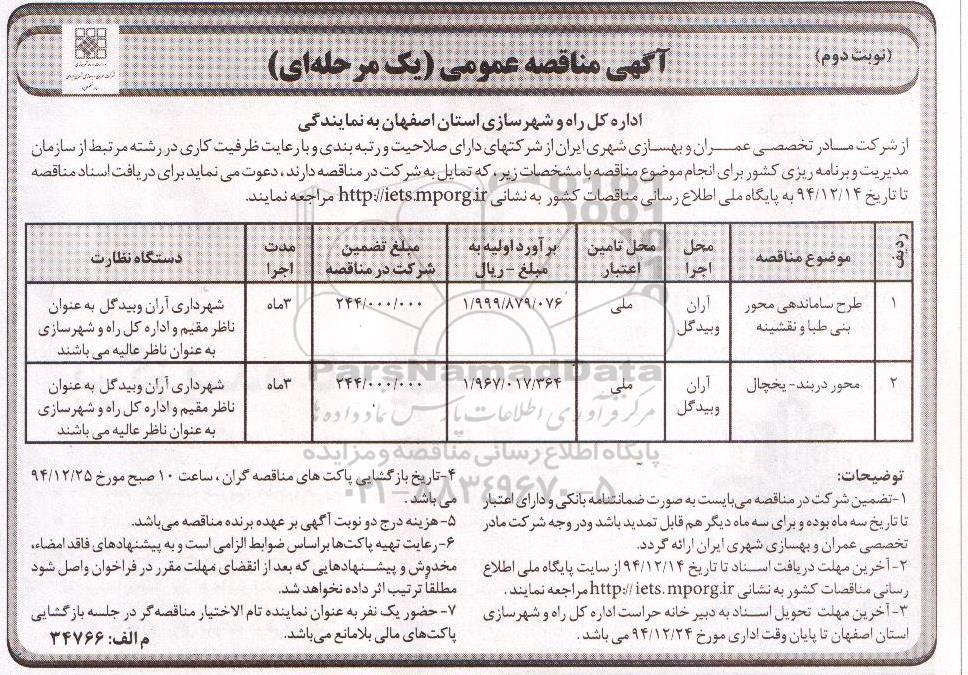 (نوبت دوم)
آگهی مناقصه عمومی (یک مرحله‌ای)
اداره کل راه و شهرسازی استان اصفهان به نمایندگی
از شرکت مادر تخصصی عمران و بهسازی شهری ایران از شرکتهای دارای صلاحیت و رتبه بندی و با رعایت ظرفیت کاری در رشته مرتبط از سازمان
مدیریت و برنامه ریزی کشور برای انجام موضوع مناقصه با مشخصات زیر، که تمایل به شرکت در مناقصه دارند، دعوت می نماید برای دریافت اسناد مناقصه
تا تاریخ ۹۴/۱۲/۱۴ به پایگاه ملی اطلاع رسانی مناقصات کشور به نشانی http://iets.mporg.ir مراجعه نمایند.
ردیف موضوع مناقصه محل اجرا محل تامین اعتبار برآورد اولیه به مبلغ - ریال مبلغ تضمین شرکت در مناقصه مدت اجرا دستگاه نظارت
۱ طرح ساماندهی محور آران ملی ۱/۹۹۹/۸۷۹/۰۷۶ ۲۴۴/۰۰۰/۰۰۰ ۳ماه شهرداری آران وبیدگل به عنوان
بنی طبا و نقشینه وبیدگل ناظر مقیم و اداره کل راه و شهرسازی
به عنوان ناظر عالیه می باشند
۲ محور دربند - یخچال آران ملی ۱/۹۶۷/۰۱۷/۳۶۴ ۲۴۴/۰۰۰/۰۰۰ ۳ماه شهرداری آران وبیدگل به عنوان
وبیدگل ناظر مقیم و اداره کل راه و شهرسازی
به عنوان ناظر عالیه می باشند
ParsNamadData
مرکز فرآوری اطلاعات پارس نماد داده ها
پایگاه اطلاع رسانی مناقصه و مزایده
۰۲۱-۸۸۳۴۹۶۷۰-۵
توضیحات:
۱-تضمین شرکت در مناقصه می‌بایست به صورت ضمانتنامه بانکی و دارای اعتبار
تا تاریخ سه ماه بوده و برای سه ماه دیگر هم قابل تمدید باشد ودر وجه شرکت مادر
تخصصی عمران و بهسازی شهری ایران ارائه گردد.
۲-آخرین مهلت دریافت اسناد تا تاریخ ۹۴/۱۲/۱۴ از سایت پایگاه ملی اطلاع
رسانی مناقصات کشور به نشانی http://iets.mporg.ir مراجعه نمایند.
۳-آخرین مهلت تحویل اسناد به دبیر خانه حراست اداره کل راه و شهرسازی
استان اصفهان تا پایان وقت اداری مورخ ۹۴/۱۲/۲۴ می باشد.
۴-تاریخ بازگشایی پاکت های مناقصه گران، ساعت ۱۰ صبح مورخ ۹۴/۱۲/۲۵
می باشد.
۵-هزینه درج دو نوبت آگهی بر عهده برنده مناقصه می‌باشد.
۶-رعایت تهیه پاکت‌ها براساس ضوابط الزامی است و به پیشنهادهای فاقد امضاء،
مخدوش و پیشنهادهایی که بعد از انقضای مهلت مقرر در فراخوان واصل شود
مطلقاً ترتیب اثر داده نخواهد شد.
۷-حضور یک نفر به عنوان نماینده تام الاختیار مناقصه‌گر در جلسه بازگشایی
پاکت‌های مالی بلامانع می‌باشد.
م الف: ۳۴۷۶۶